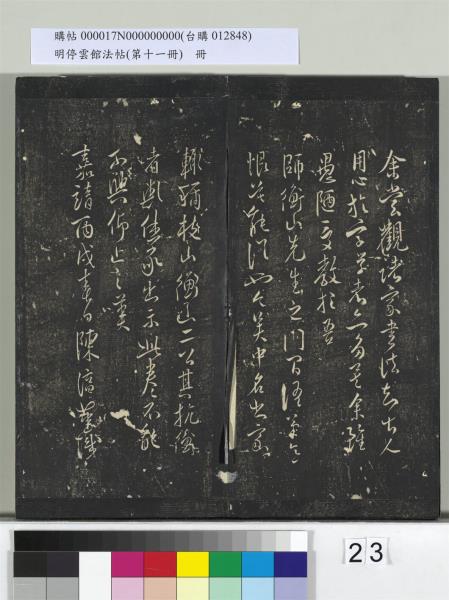 購帖 000017N000000000(台購 012848)
明停雲館法帖(第十一冊) 冊
余嘗觀諸家書法知古人
用心於字學者亦多矣余雖
愚陋受教於吾
師衡山先生之門
恨 吳中名書家
輒稱枝山衡山二公其
者 佳 出示此卷不能
不興仰止之嘆
嘉靖丙戌春日陳淳 識
23